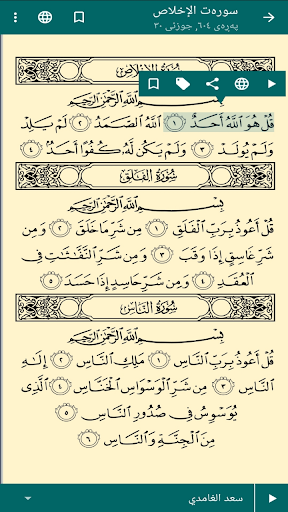 سورەت الإخلاص
پەڕەی ٦٠٤, جوزئی ٣٠
سُورَةُ الإِخْلَاصِ
بِسْمِ اللَّهِ الرَّحْمَٰنِ الرَّحِيمِ
قُلْ هُوَ اللَّهُ أَحَدٌ ١ اللَّهُ الصَّمَدُ ٢ لَمْ يَلِدْ
وَلَمْ يُولَدْ ٣ وَلَمْ يَكُن لَّهُ كُفُوًا أَحَدٌ ٤
سُورَةُ الفَلَقِ
بِسْمِ اللَّهِ الرَّحْمَٰنِ الرَّحِيمِ
قُلْ أَعُوذُ بِرَبِّ الْفَلَقِ ١ مِن شَرِّ مَا خَلَقَ ٢ وَمِن
شَرِّ غَاسِقٍ إِذَا وَقَبَ ٣ وَمِن شَرِّ النَّفَّٰثَٰتِ فِي
الْعُقَدِ ٤ وَمِن شَرِّ حَاسِدٍ إِذَا حَسَدَ ٥
سُورَةُ النَّاسِ
بِسْمِ اللَّهِ الرَّحْمَٰنِ الرَّحِيمِ
قُلْ أَعُوذُ بِرَبِّ النَّاسِ ١ مَلِكِ النَّاسِ ٢ إِلَٰهِ
النَّاسِ ٣ مِن شَرِّ الْوَسْوَاسِ الْخَنَّاسِ ٤ الَّذِي
يُوَسْوِسُ فِي صُدُورِ النَّاسِ ٥
مِنَ الْجِنَّةِ وَالنَّاسِ ٦
سعد الغامدي